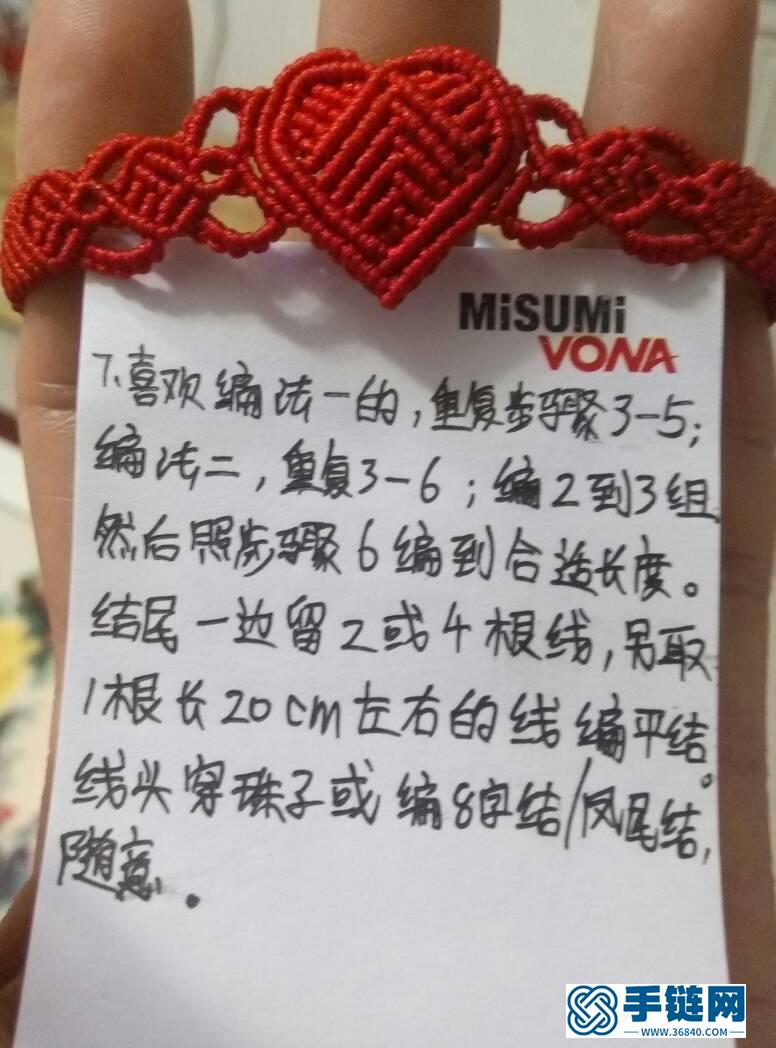 MiSUMi
VONA
7、喜欢编法一的，重复步骤3-5；
编法二，重复3-6；编2到3组
然后照步骤6编到合适长度。
结尾一边留2或4根线，另取
1根长20cm左右的线编平结。
线头穿珠子或编8字结/凤尾结，
随意。
手链网
WWW.36840.COM